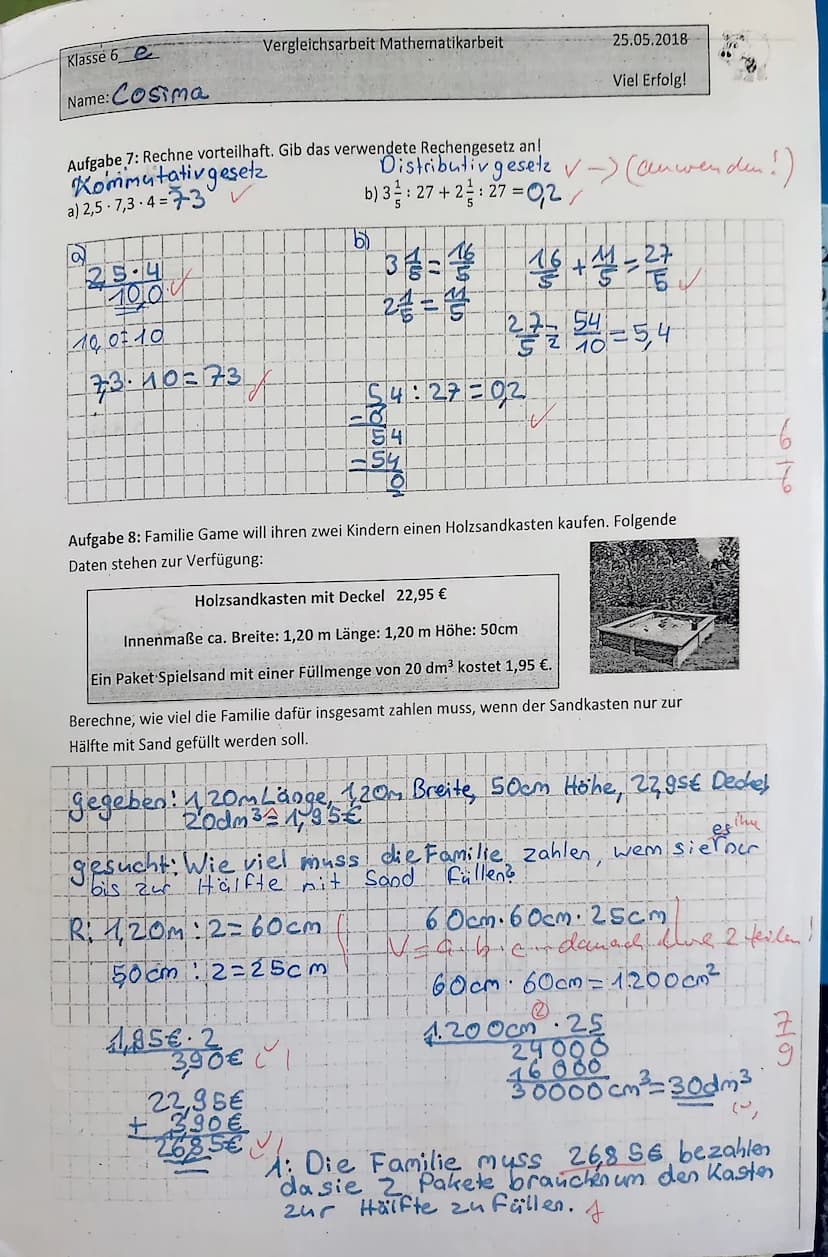 Klasse 6 e Vergleichsarbeit Mathematikarbeit 25.05.2018
Name: Cosima Viel Erfolg!
Aufgabe 7: Rechne vorteilhaft. Gib das verwendete Rechengesetz an!
Kommutativgesetz Distributivgesetz ✓ -> (anwenden!)
a) 2,5 · 7,3 · 4 = 73 ✓ b) 3 1/5 : 27 + 2 1/5 : 27 = 0,2 ✓
a) b)
2,5 · 4 3 1/5 = 16/5 16/5 + 11/5 = 27/5 ✓
10,0 ✓ 2 1/5 = 11/5
10,0 = 10 27/5 = 54/10 = 5,4
7,3 · 10 = 73 ✓ 5,4 : 27 = 0,2 ✓
- 0
54
- 54
0
6/6
Aufgabe 8: Familie Game will ihren zwei Kindern einen Holzsandkasten kaufen. Folgende
Daten stehen zur Verfügung:
Holzsandkasten mit Deckel 22,95 €
Innenmaße ca. Breite: 1,20 m Länge: 1,20 m Höhe: 50cm
Ein Paket Spielsand mit einer Füllmenge von 20 dm³ kostet 1,95 €.
Berechne, wie viel die Familie dafür insgesamt zahlen muss, wenn der Sandkasten nur zur
Hälfte mit Sand gefüllt werden soll.
gegeben: 1,20m Länge, 1,20m Breite, 50cm Höhe, 22,95€ Deckel,
20dm³ ≙ 1,95€
es ihn
gesucht: Wie viel muss die Familie zahlen, wenn sie nur
bis zur Hälfte mit Sand füllen?
R: 1,20m : 2 = 60cm 60cm · 60cm · 25cm
V = a · b · c danach durch 2 teilen!
50cm : 2 = 25cm 60cm · 60cm = 1200cm²
1,95€ · 2 1.200cm² · 25
3,90€ ✓ 24000
16000
22,95€ 30000cm³ = 30dm³
+ 3,90€ (✓)
26,85€ ✓
7/9
A: Die Familie muss 26,85€ bezahlen
da sie 2 Pakete brauchen um den Kasten
zur Hälfte zu füllen.